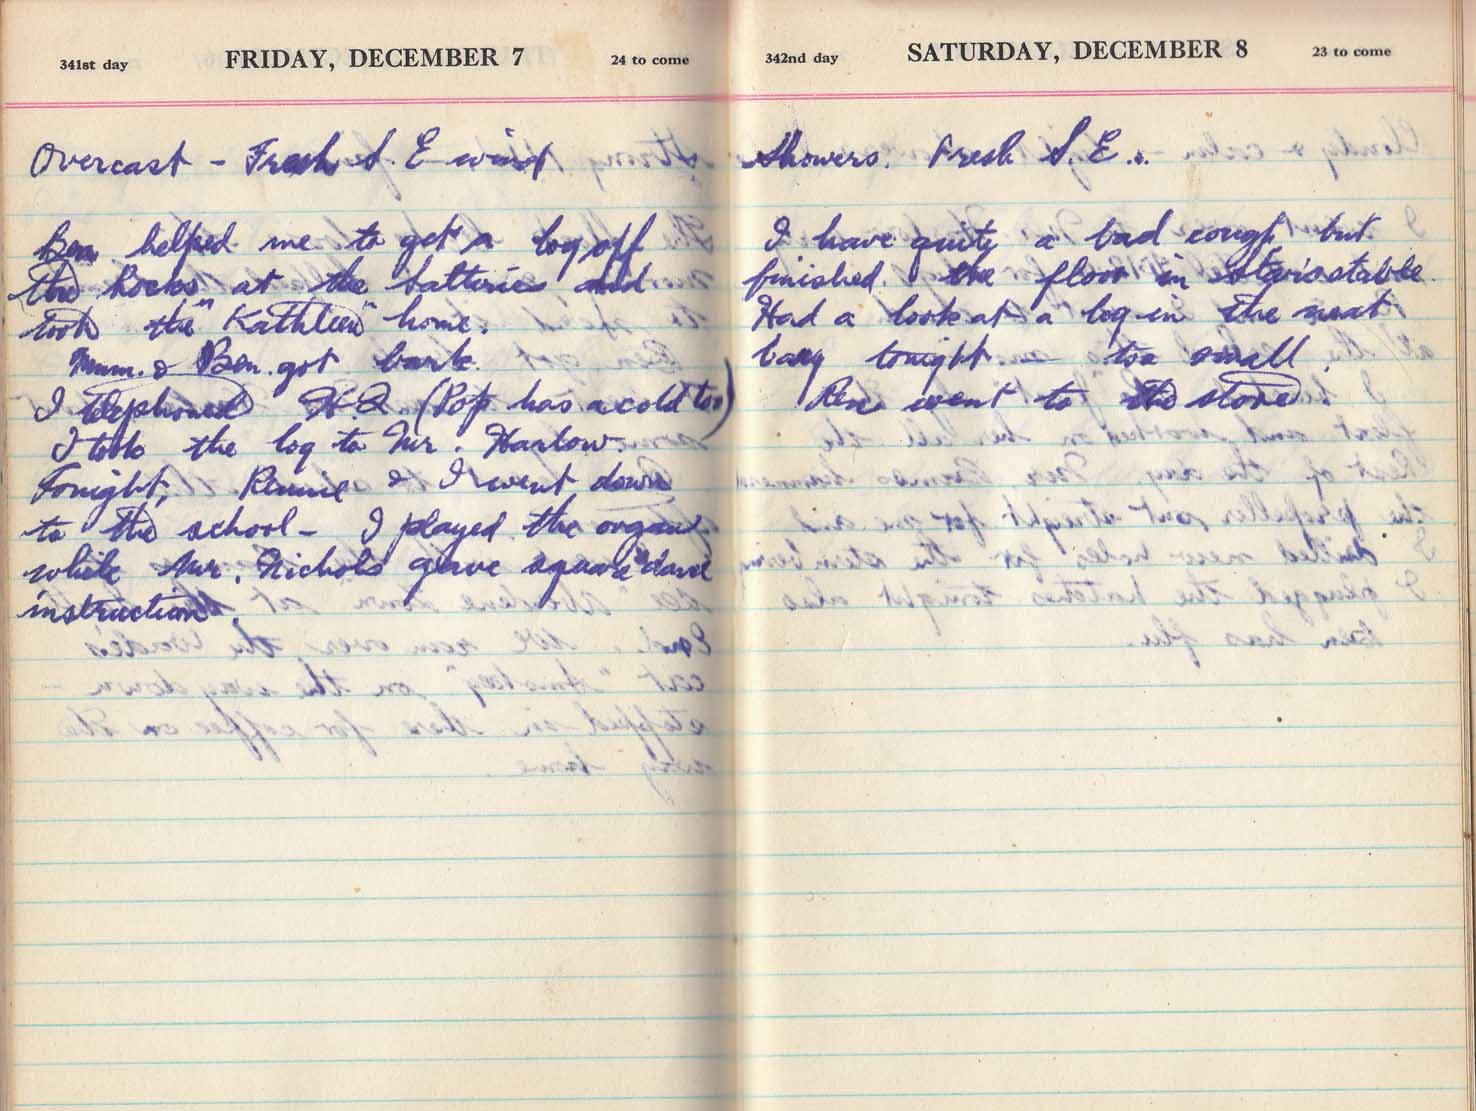 341st day FRIDAY, DECEMBER 7 24 to come
Overcast - Fresh S. E wind
Ben helped me to get a log off
the Rocks at the batteries and
took the "Kathleen" home.
Mum. & Ben. got bark.
I telephoned (Pop has a cold too)
I took the log to Mr. Harlow.
Tonight, Rennie & I went down
to the school - I played the organ
while Mr. Nichols gave square dance
instruction.
342nd day SATURDAY, DECEMBER 8 23 to come
Showers. Fresh S. E..
I have quite a bad cough, but
finished the floor in
Had a look at a log in the next
bay tonight too small.
Ren went to the store.